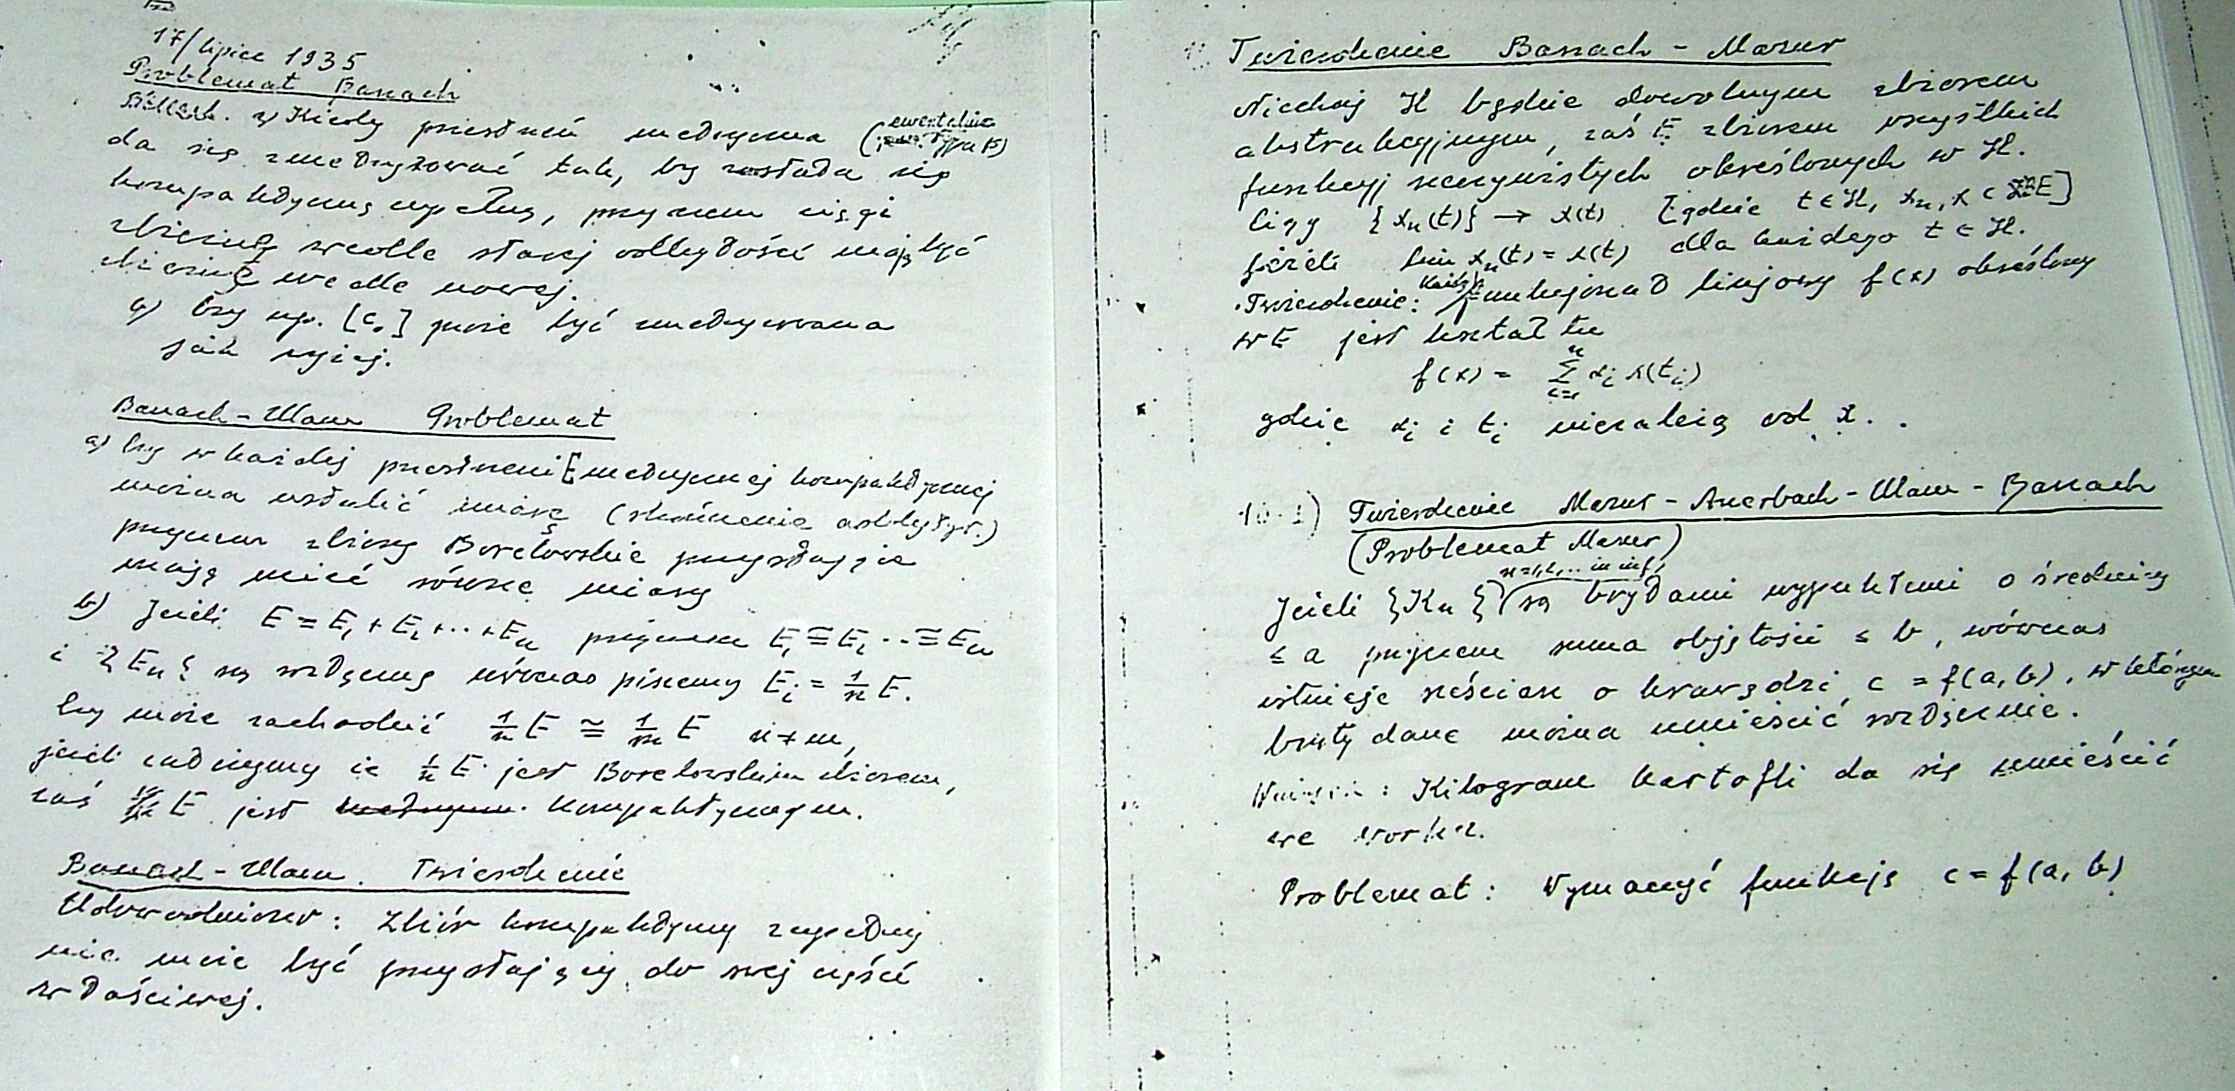 17/lipiec 1935
Problemat Banach
Kiedy przestrzeń metryczna (ewentualnie typu B)
da się zmetryzować tak, by została się
kompaktyczną zupełną, przyczem ciągi
zbieżne wedle starej odległości mają być
zbieżne wedle nowej.
a) Czy np. [c₀] może być zmetryzowana
jak wyżej.
Banach-Ulam Problemat
a) Czy w każdej przestrzeni E metrycznej kompaktycznej
można ustalić miarę (skończenie addytyw.)
przyczem zbiory Borelowskie przystające
mają mieć równe miary
b) Jeżeli E = E₁ + E₂ + ... + Eₙ przyczem E₁ ≅ E₂ .. ≅ Eₙ
i {Eₙ} są rozłączne wówczas piszemy Eᵢ = 1/n E.
Czy może zachodzić 1/n E ≅ 1/m E n≠m,
jeżeli żądny że 1/n E jest Borelowskim zbiorem,
zaś E jest kompaktycznym.
Banach-Ulam. Twierdzenie
Udowodniono: Zbiór kompaktyczny zupełny
nie może być przystający do swej części
właściwej.
Twierdzenie Banach - Mazur
Niechaj H będzie dowolnym zbiorem
abstrakcyjnym, zaś E zbiorem wszystkich
funkcyj rzeczywistych określonych w H.
Ciąg {xₙ(t)} → x(t) [gdzie t ∈ H, xₙ, x ⊂ E]
jeżeli lim xₙ(t) = x(t) dla każdego t ∈ H.
Twierdzenie: Każdy funkcjonał linjowy f(x) określony
w E jest kształtu
f(x) = Σⁿᵢ₌₁ αᵢ x(tᵢ)
gdzie αᵢ i tᵢ niezależą od x.
10.1) Twierdzenie Mazur - Auerbach - Ulam - Banach
(Problemat Mazur)
n=1,2,... in inf,
Jeżeli {Kₙ} są bryłami wypukłemi o średnicy
≤ a przyczem suma objętości ≤ b, wówczas
istnieje sześcian o krawędzi c = f(a, b), w którym
bryły dane można umieścić rozłącznie.
Wniosek: Kilogram kartofli da się umieścić
we worku.
Problemat: Wyznaczyć funkcję c = f(a, b)